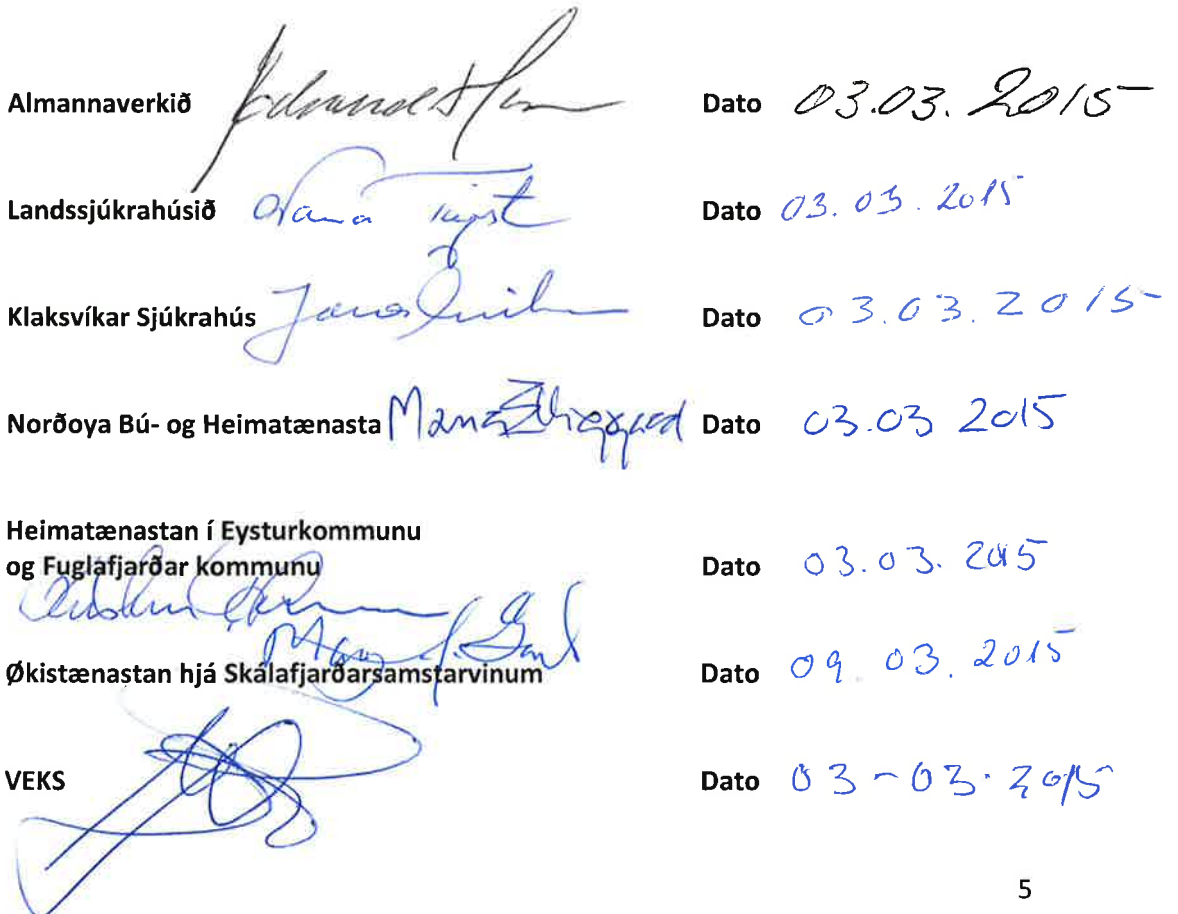 Almannaverkið Dato 03.03.2015
Landssjúkrahúsið Dato 03.03.2015
Klaksvíkar Sjúkrahús Dato 03.03.2015
Norðoya Bú- og Heimatænasta Dato 03.03 2015
Heimatænastan í Eysturkommunu
og Fuglafjarðar kommunu Dato 03.03.2015
Økistænastan hjá Skálafjarðarsamstarvinum Dato 09.03.2015
VEKS Dato 03-03-2015
5